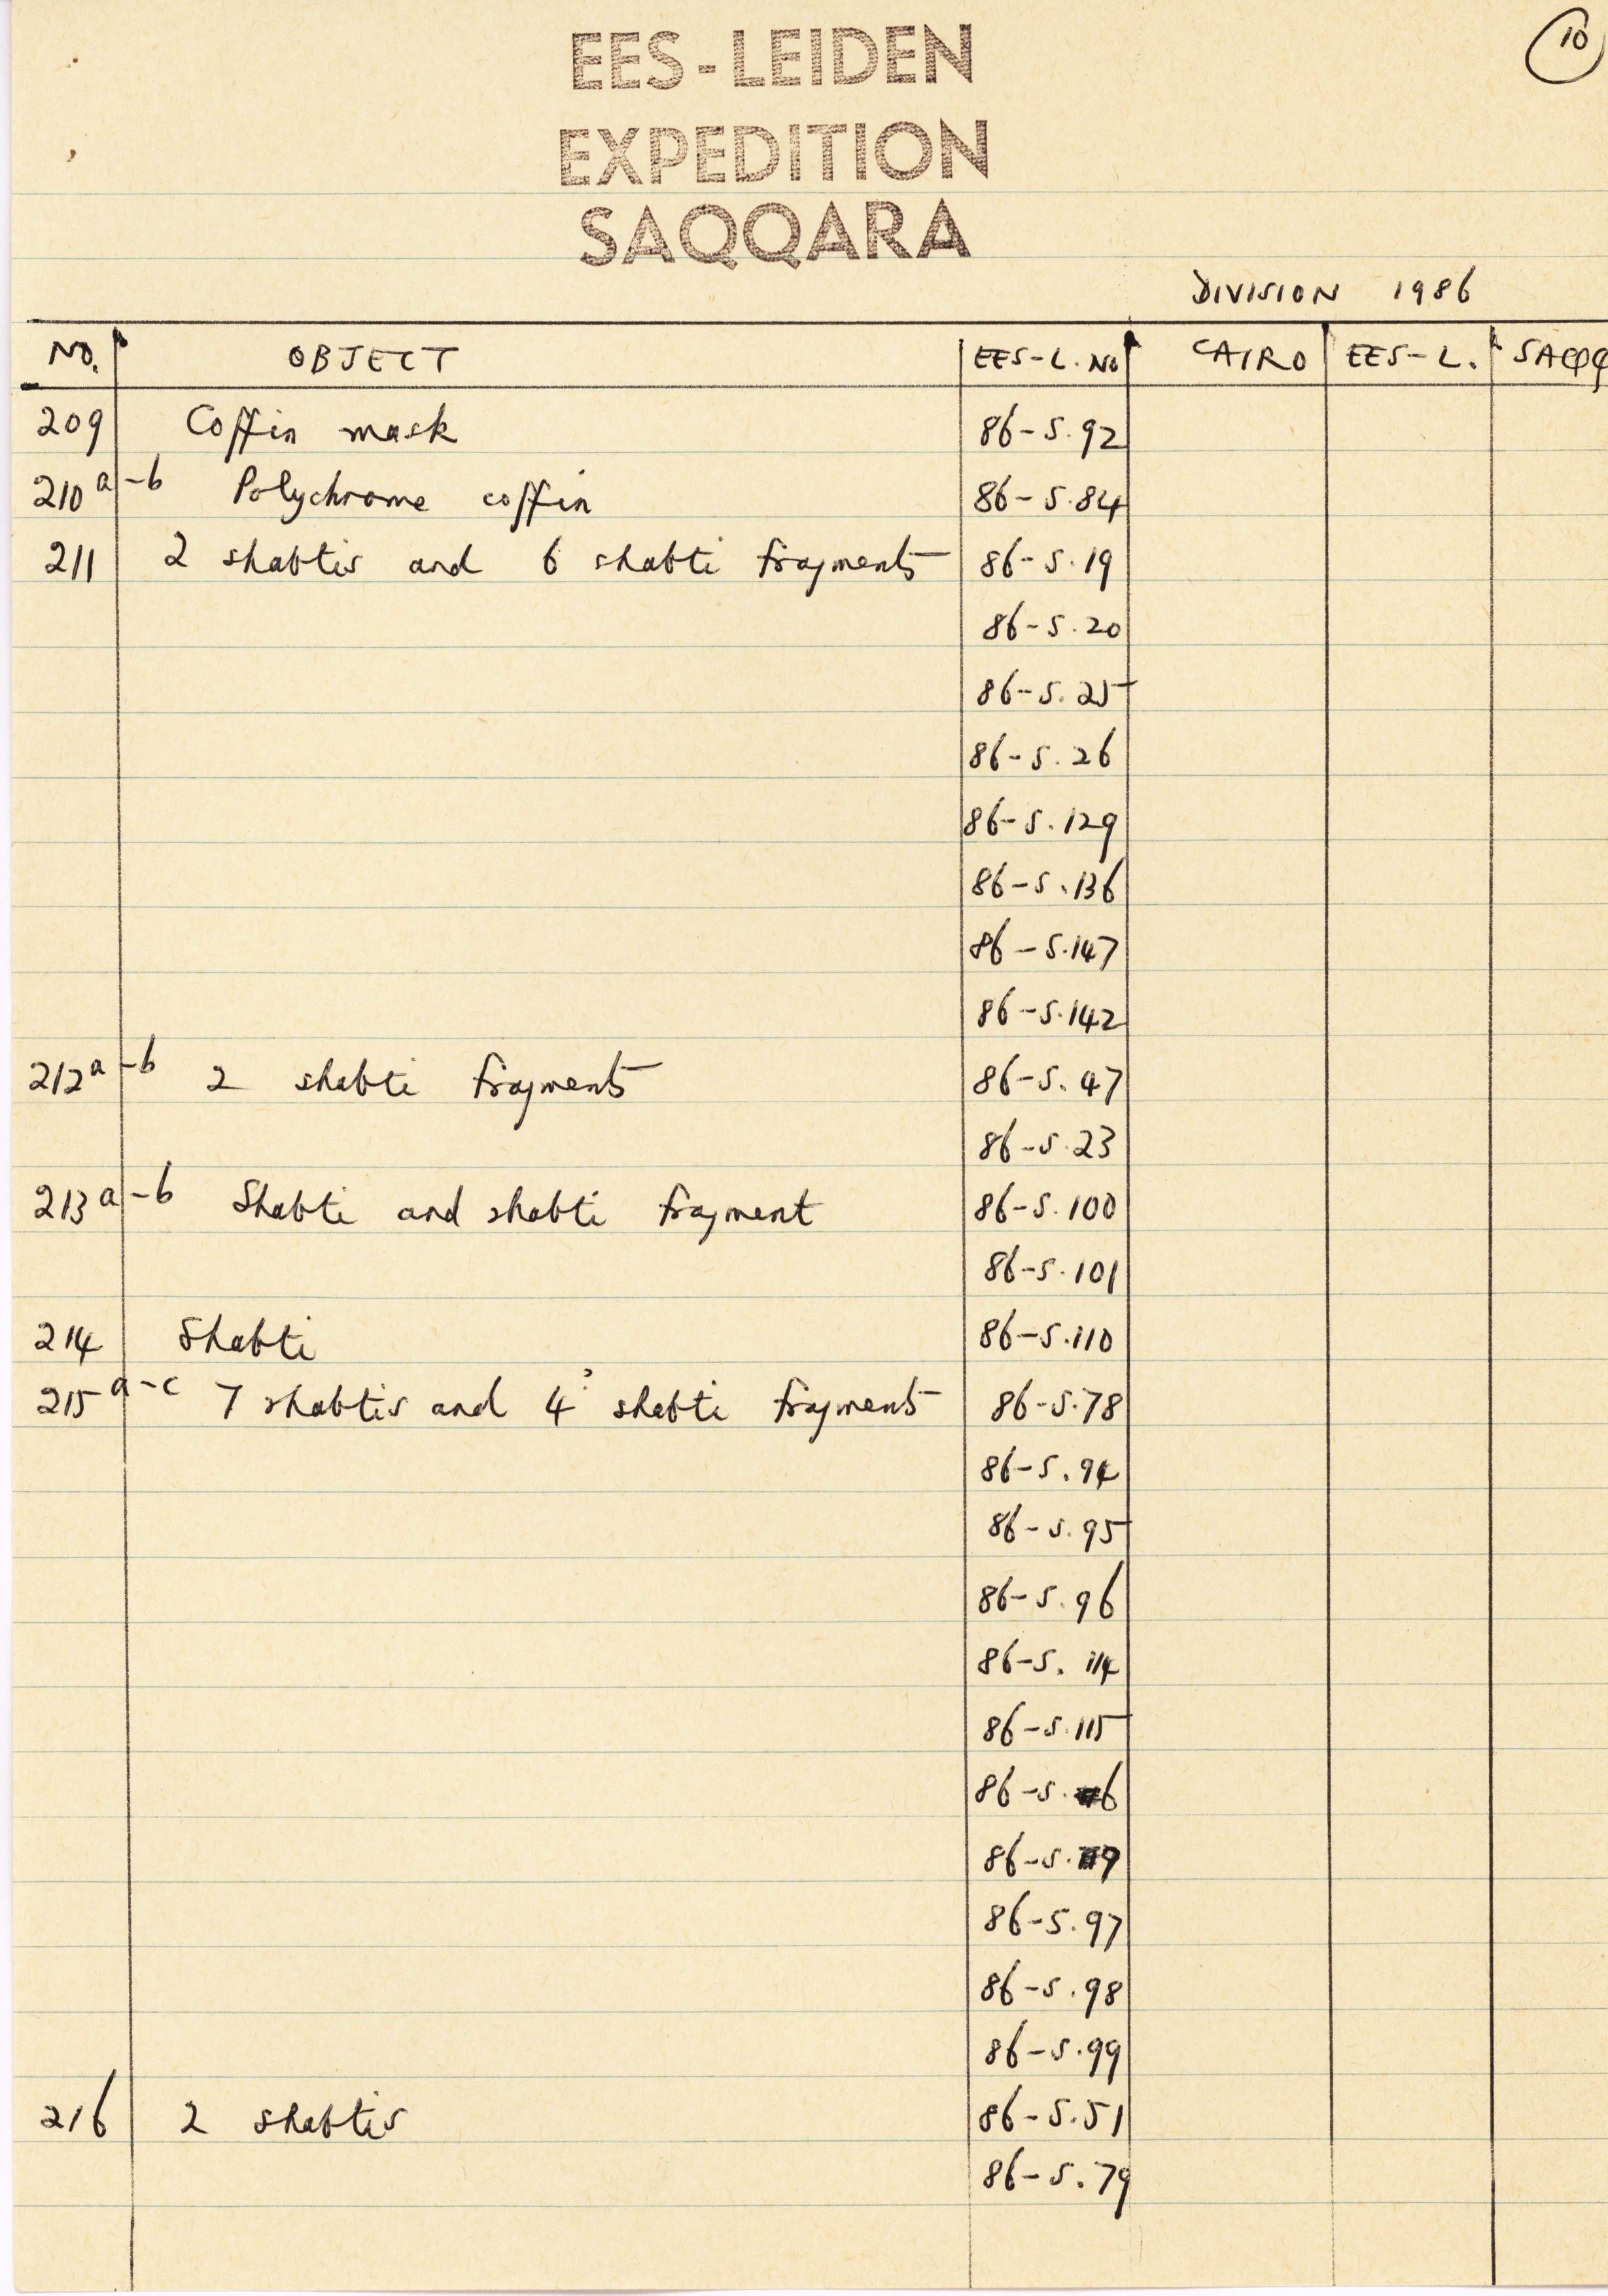 10
EES-LEIDEN
EXPEDITION
SAQQARA
DIVISION 1986
NO. OBJECT EES-L. NO CAIRO EES-L. SAQQ
209 Coffin mask 86-S.92
210 a-b Polychrome coffin 86-S.84
211 2 shabtis and 6 shabti fragments 86-S.19
86-S.20
86-S.25
86-S.26
86-S.129
86-S.136
86-S.147
86-S.142
212 a-b 2 shabti fragments 86-S.47
86-S.23
213 a-b Shabti and shabti fragment 86-S.100
86-S.101
214 Shabti 86-S.110
215 a-c 7 shabtis and 4 shabti fragments 86-S.78
86-S.94
86-S.95
86-S.96
86-S.114
86-S.115
86-S.
86-S.
86-S.97
86-S.98
86-S.99
216 2 shabtis 86-S.51
86-S.79